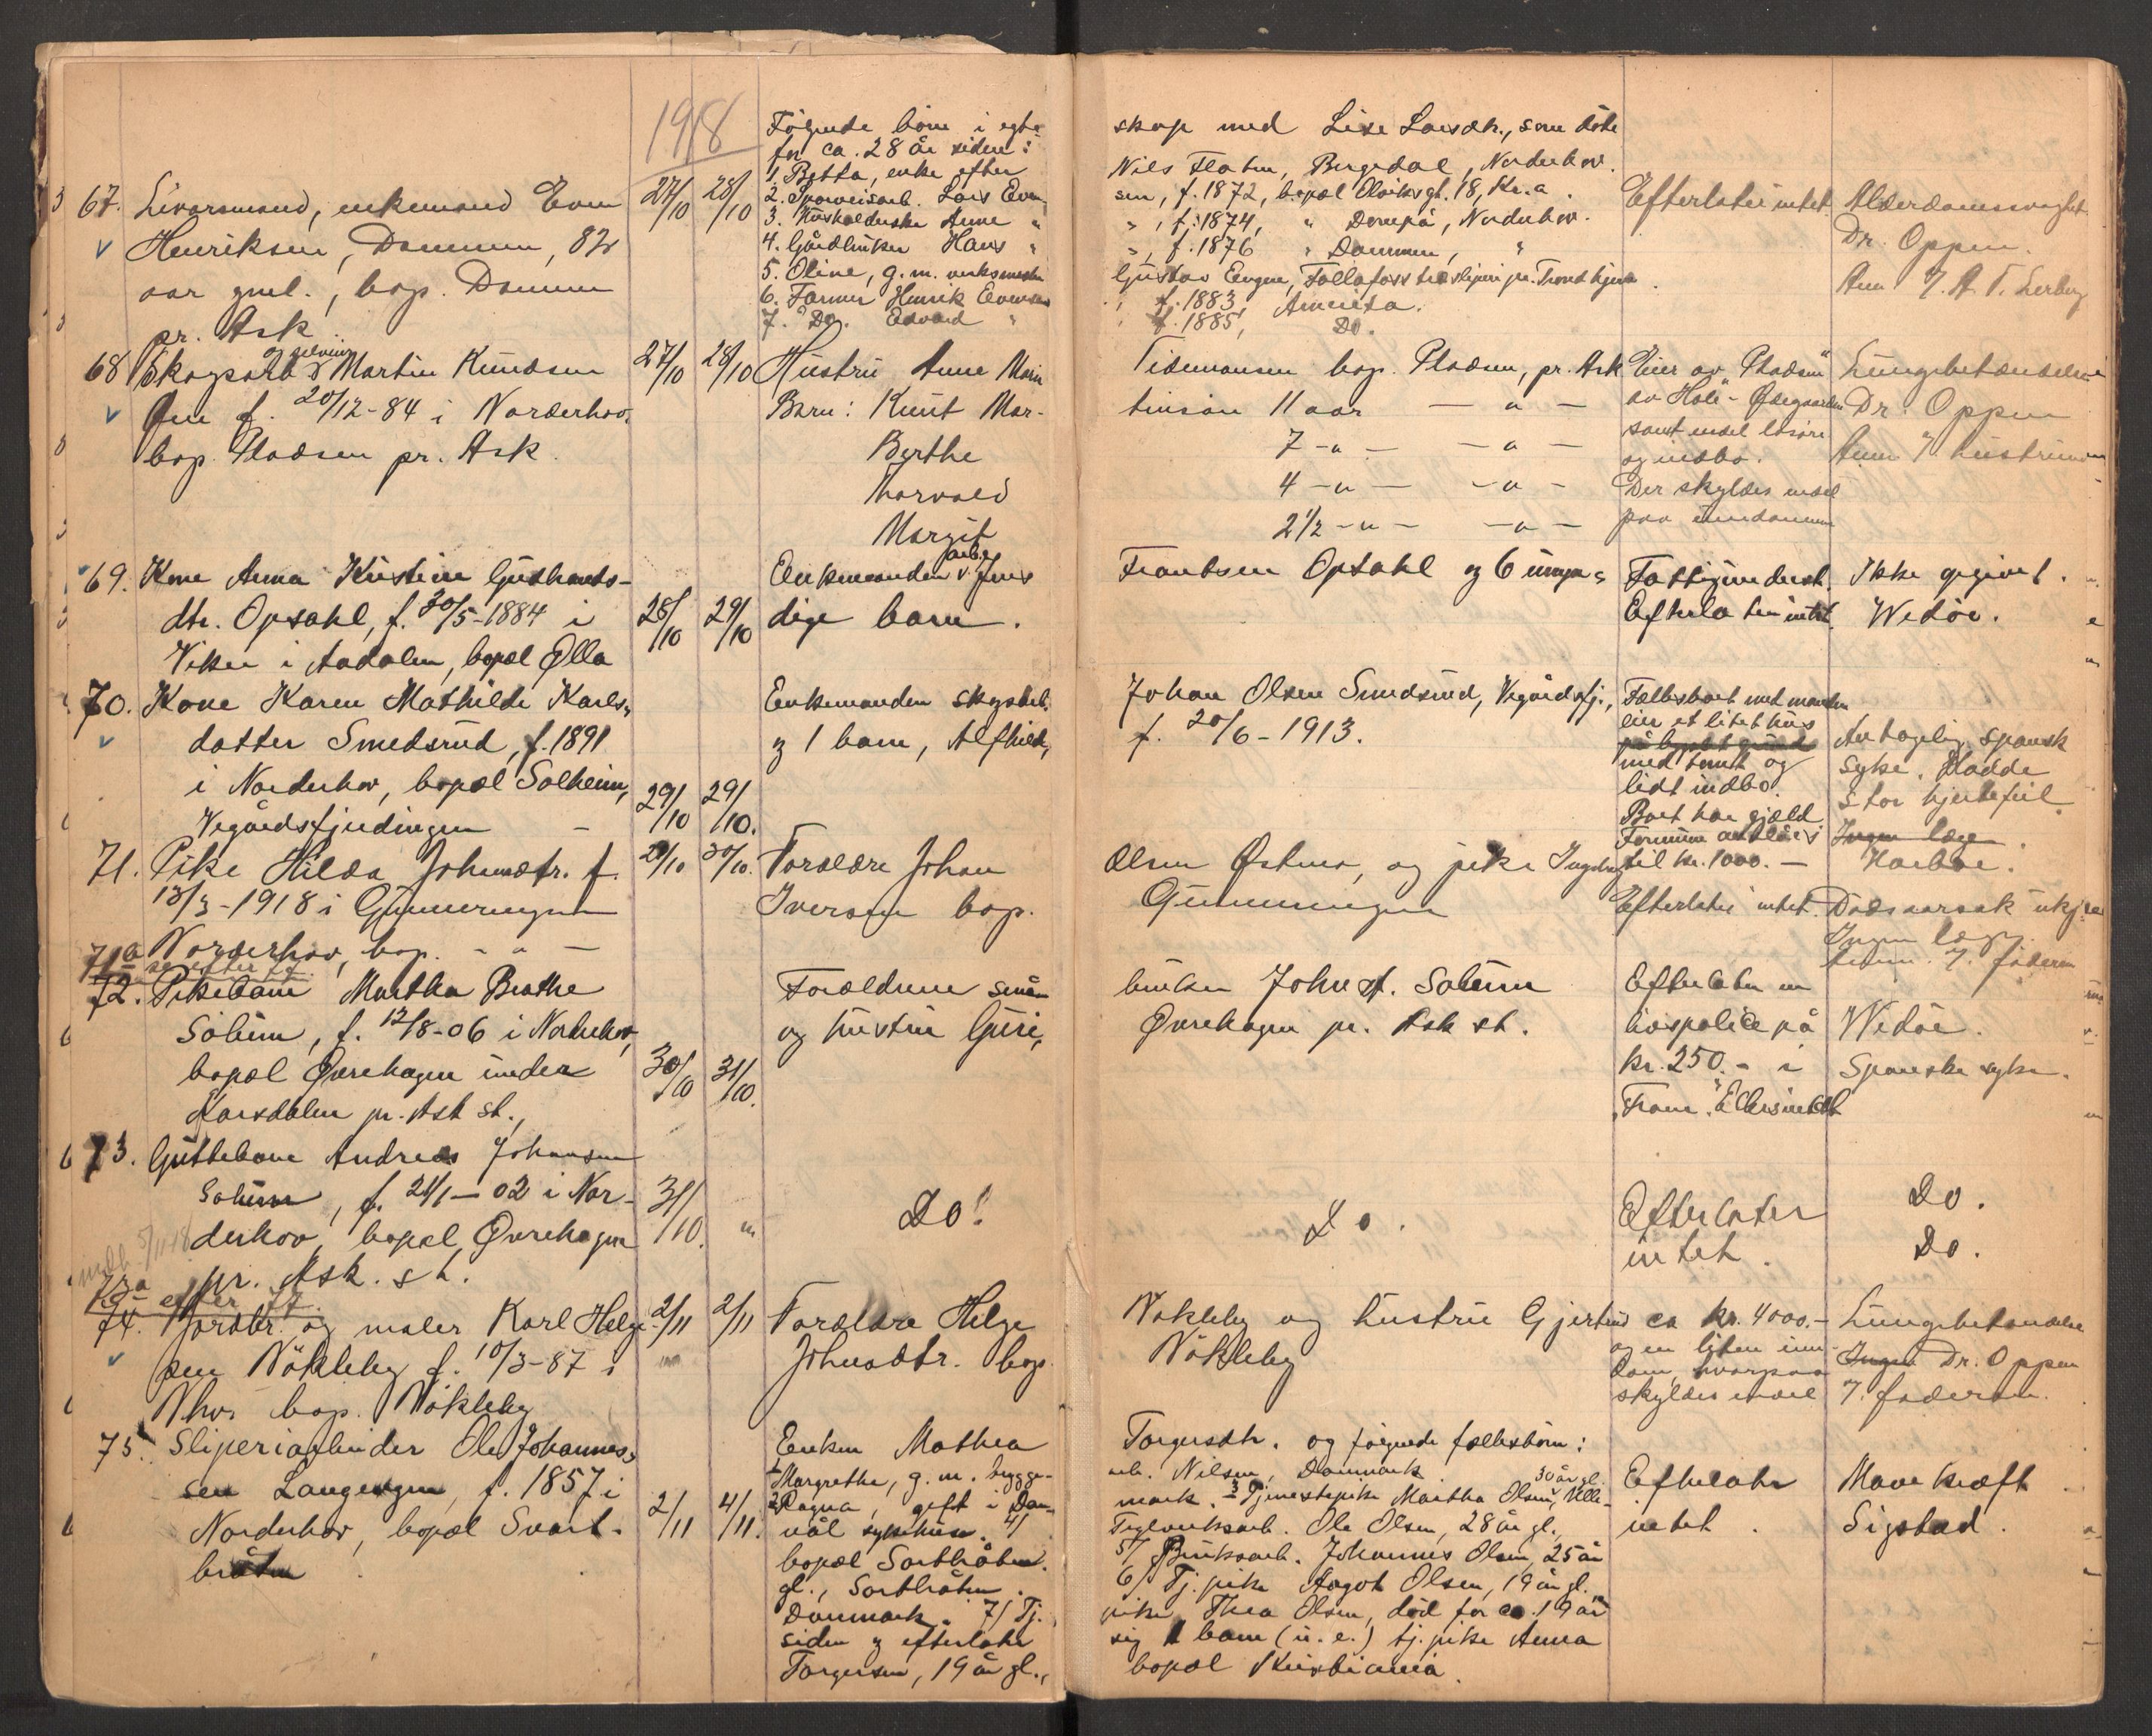 1918
Følgende børn i egte-
for ca. 28 år siden:
1. Betta, enke efter
67. Livørsmand, enkemand Even 27/10 28/10 2. Sporveisarb. Lars Even
Henriksen, Dammen, 82 3. Husholderske Anne "
aar gml., bop. Dammen 4. Gårdbruker Hans "
pr. Ask. 5. Oline, g.m. verksmester
6. Farmer Henrik Evensen
7. Do. Edvard "
68 Skogsarb. og selveier Martin Knudsen 27/10 28/10 Hustru Anne Marie
f. 20/12-84 i Norderhov, Barn: Knut Mar-
bop. Pladsen pr. Ask. Berthe
Thorvald
Margit
69. Kone Anna Kristine Gudbrands- Enkemanden arb. Jens
dtr. Opsahl, f. 30/5-1884 i 28/10 29/10 dige barn.
Viker i Aadalen, bopæl Ølla
70. Kone Karen Mathilde Karls- Enkemanden skogsarb.
datter Smedsrud, f. 1891 og 1 barn, Alfhild,
i Norderhov, bopæl Solheim, 29/10 29/10.
Vegårdsfjerdingen
71. Pike Hilda Johansdtr. f. 29/10 30/10. Forældre Johan
13/3-1918 i Iversen bop.
Norderhov, bop. - " -
71a se efter 77.
72. Pikebarn Martha Beathe Forældrene småbruker
Solum, f. 12/8-06 i Norderhov, og hustru Guri,
bopæl Øvrehagen under 30/10 31/10.
Karsdalen pr. Ask st.,
73. Guttebarn Andreas Johansen
Solum, f. 21/1-02 i Nor- 31/10. " Do!
derhov, bopæl Øvrehagen
pr. Ask. st.
73a efter 77.
74. Jordbr. og maler Karl Helge- 2/11 2/11 Forældre Helge
sen Nökleby f. 10/3-87 i Johnsdtr. bop.
Nhov bop. Nökleby
75. Sliperiarbeider Ole Johannes- Enken Mathea
sen Langengen, f. 1857 i 1 Margrethe, g.m. bygge-
Norderhov, bopæl Svart- 2/11 4/11. 2 Ragna, gift i Dan-
bråten vål sykehus. 4/
bopæl Sortbråten.
gl., Sortbråten.
Danmark. 7/ Tj.
siden og efterlater
Torgersen, 19 år gl.,
skap med Lise Larsdtr., som døde
Nils Flaten, Bergsdal, Norderhov.
sen, f. 1872, bopæl Olviksgt. 18, Kr.a.
", f. 1874, " Norderhov.
", f. 1876 " Dammen, "
Gustav Fallafoss træsliperi pr. Trondhjem
", f. 1883, Amerika.
" f. 1885, Do.
Efterlater intet. Alderdomssvaghet
Dr. Oppen.
Tidemansen bop. Pladsen, pr. Ask Eier av "Pladsen" Lungebetændelse
tinsen 11 aar - " - av Hole-Ødegaarden Dr. Oppen
7 - " - - " - samt endel løsøre Anm. hustruen
4 - " - - " - og indbo.
2 1/2 - " - - " - Der skyldes endel
paa eiendommen
Frantsen Opsahl og 6 umyn- Fattigunderst. Ikke opgivet.
Efterlater intet. Wedøe.
Johan Olsen Smedsrud, Vegårdsfj., Fællesboet med manden
f. 20/6-1913. eier et litet hus
på bygslet grund Antagelig spansk
med tomt og syke. Hadde
lidt indbo. stor hjertefeil
Boet har gjæld. Ingen læge.
Formuen anslåes Harboe.
til kr. 1000.-
Olsen Østmo, og pike Ingeborg
Efterlater intet. Dødsaarsak ukj
Ingen læge
faderen
bruker Johan A. Solum Efterlater en
Øvrehagen pr. Ask st. livspolice på Wedøe.
kr. 250.- i Spanske syke.
"Fram". Ellers intet
Do. Efterlater Do.
intet. Do.
Nökleby og hustru Gjertrud ca kr. 4000.- Lungebetændelse
Nökleby og en liten eien- Ingen Dr. Oppen
dom, hvorpaa
skyldes endel 7. faderen.
Torgersdtr. og følgende fællesbörn:
arb. Nilsen, Danmark. 30 år gl. Efterlater Mavekræft
mark. 3 Tjenestepike Martha Olsen, Ulle- intet. Sigstad.
Teglverksarb. Ole Olsen, 28 år gl.,
5/ Bruksarb. Johannes Olsen, 25 år
6/ Tj. pike Aagot Olsen, 19 år gl.
pike Thea Olsen, död for ca. 19 år
sig 1 barn (u.e.) tj. pike Anna
bopæl Kristiania.